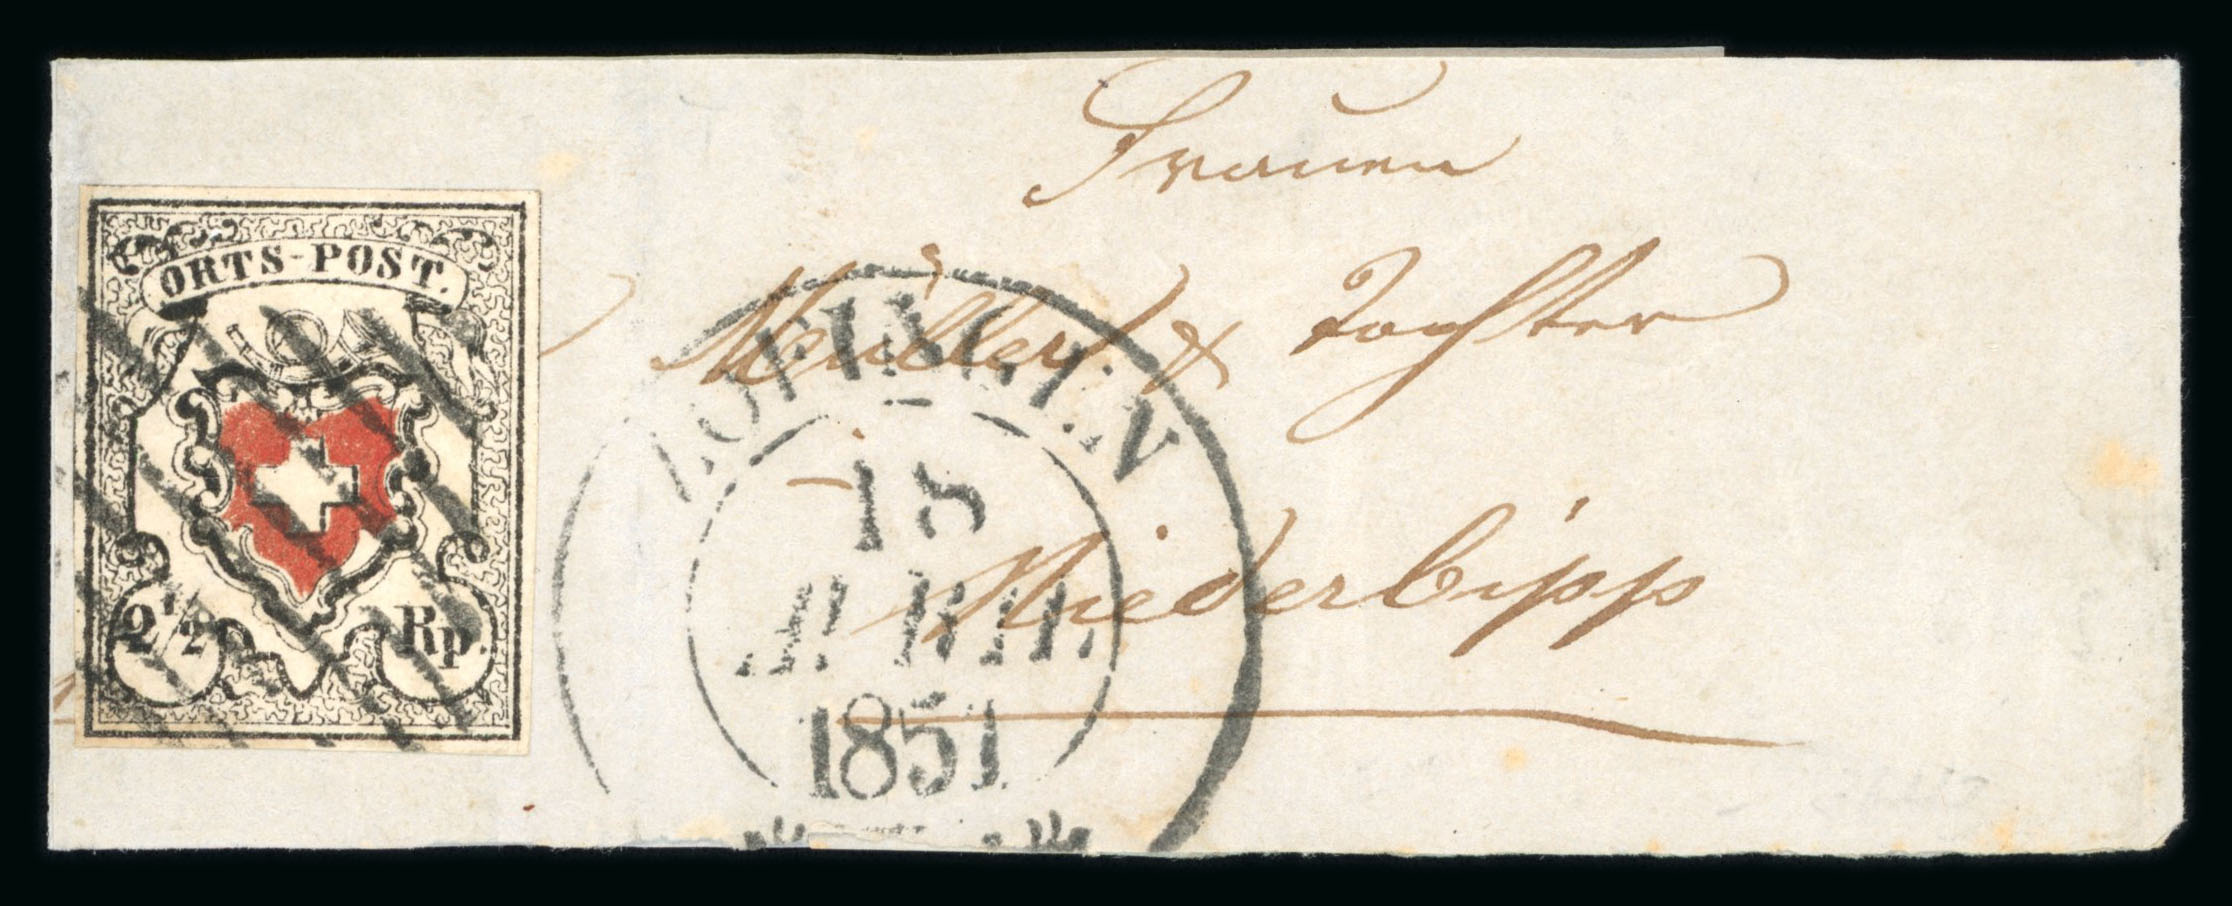 ORTS-POST.
2 1/2 Rp.
Frauen
Müller & Tochter
Niederbipp
ZOFINGEN
18
APRIL
1851